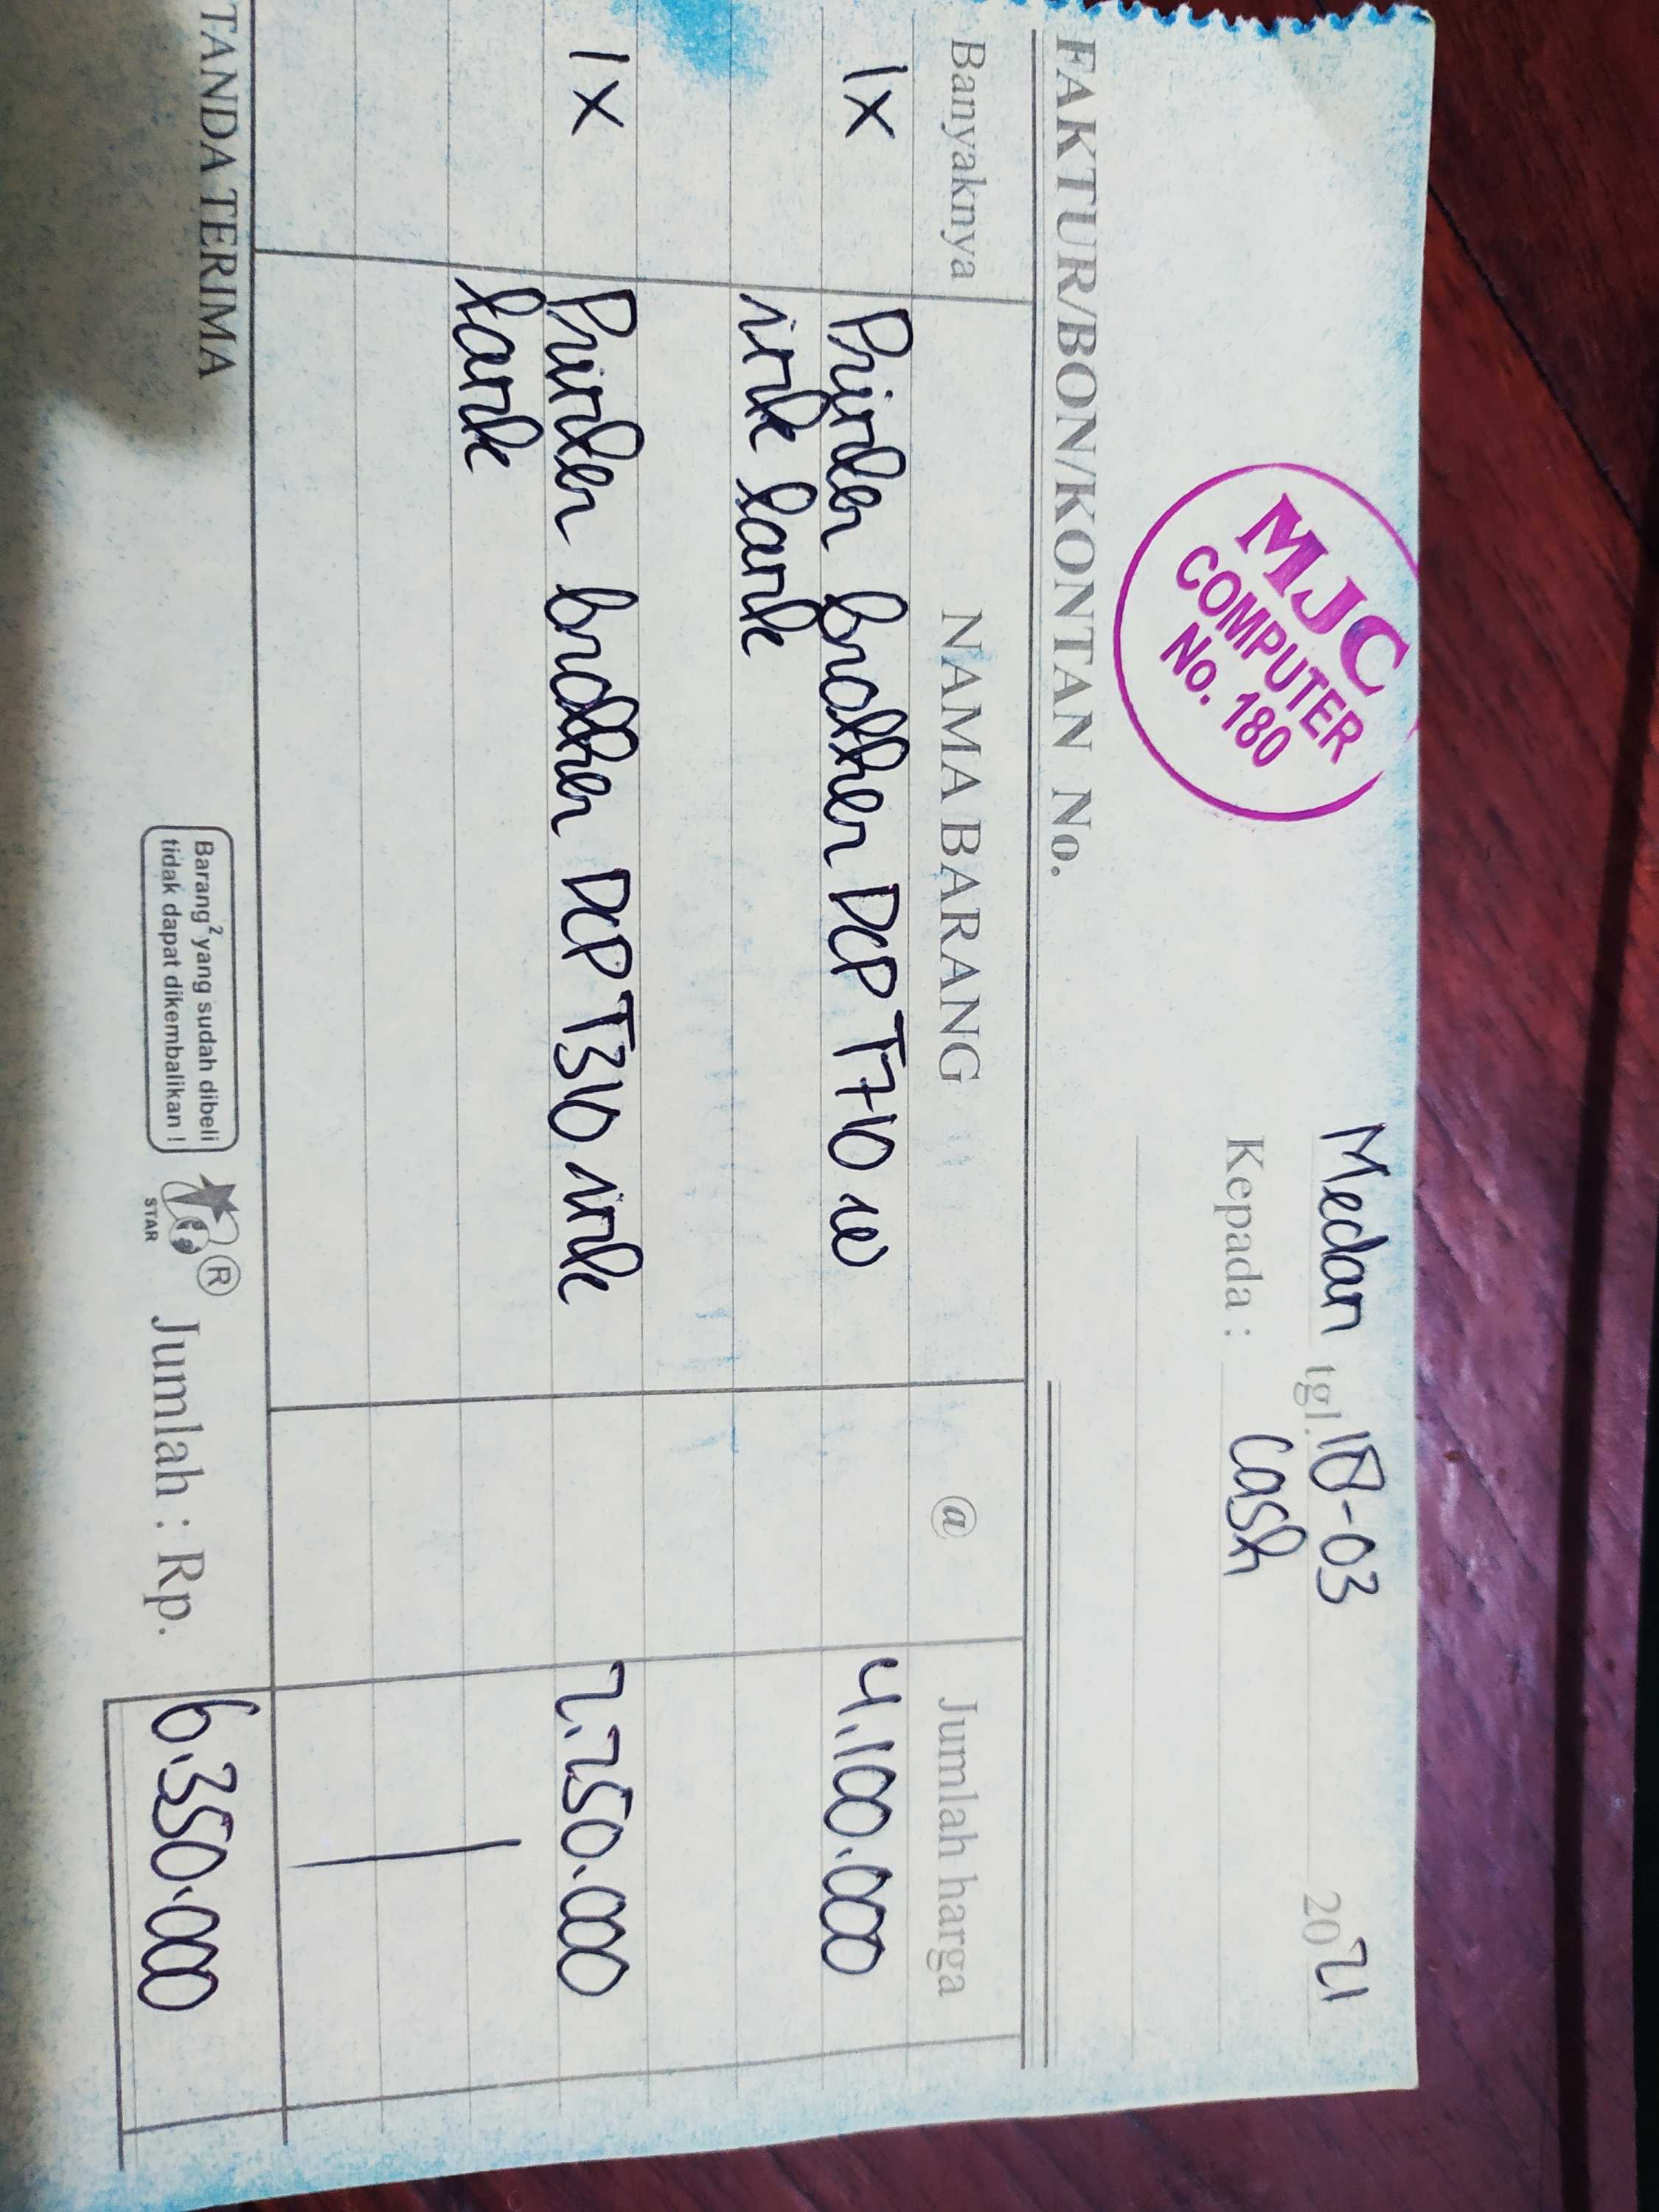 MJC
COMPUTER
No. 180
Medan tgl. 18-03 2021
Kepada : Cash
FAKTUR/BON/KONTAN No.
Banyaknya NAMA BARANG @ Jumlah harga
1x Printer brother DCP T710 w 4.100.000
ink tank
1x Printer brother DCP T310 ink 2.250.000
tank
TANDA TERIMA
Barang² yang sudah dibeli
tidak dapat dikembalikan !
STAR
®
Jumlah : Rp. 6.350.000